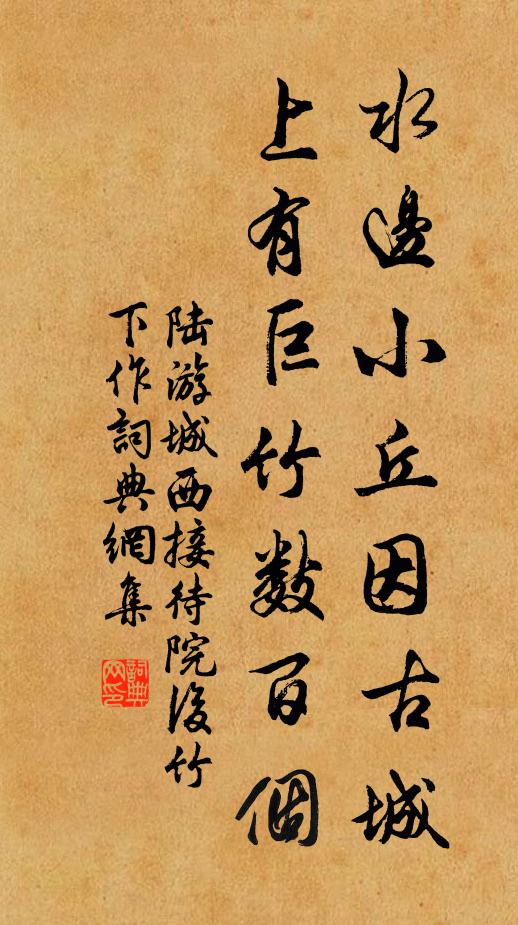 水邊小丘因古城
上有巨竹數百個
陆游城西接待院後竹
下作詞典網集
詞典網印